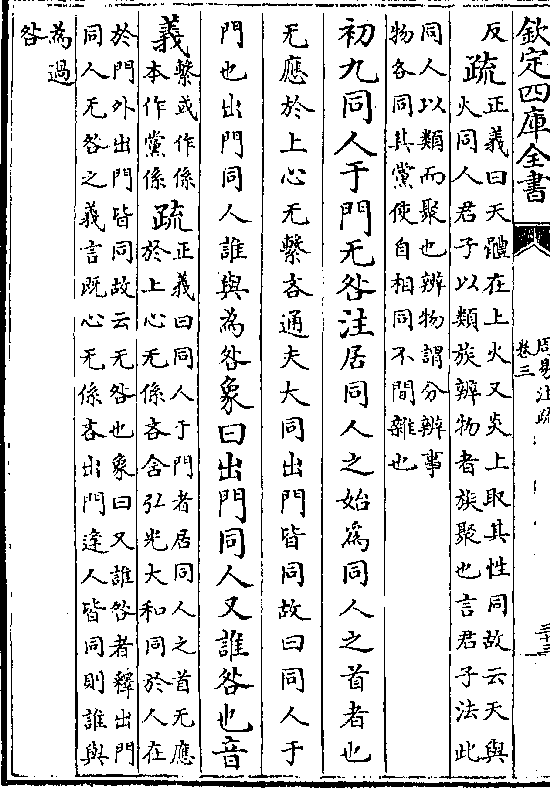 欽定四庫全書
周易注疏
卷三
反疏正義曰天體在上火又炎上取其性同故云天與
火同人君子以類族辨物者族聚也言君子法此
同人以類而聚也辨物謂分辨事
物各同其黨使自相同不間雜也
初九同人于門无咎注居同人之始為同人之首者也
无應於上心无繫吝通夫大同出門皆同故曰同人于
門也出門同人誰與為咎象曰出門同人又誰咎也音
義繫或作係
本作黨係
疏正義曰同人于門者居同人之首无應
於上心无係吝含弘光大和同於人在
於門外出門皆同故云无咎也象曰又誰咎者釋出門
同人无咎之義言既心无係吝出門逢人皆同則誰與
為過
咎